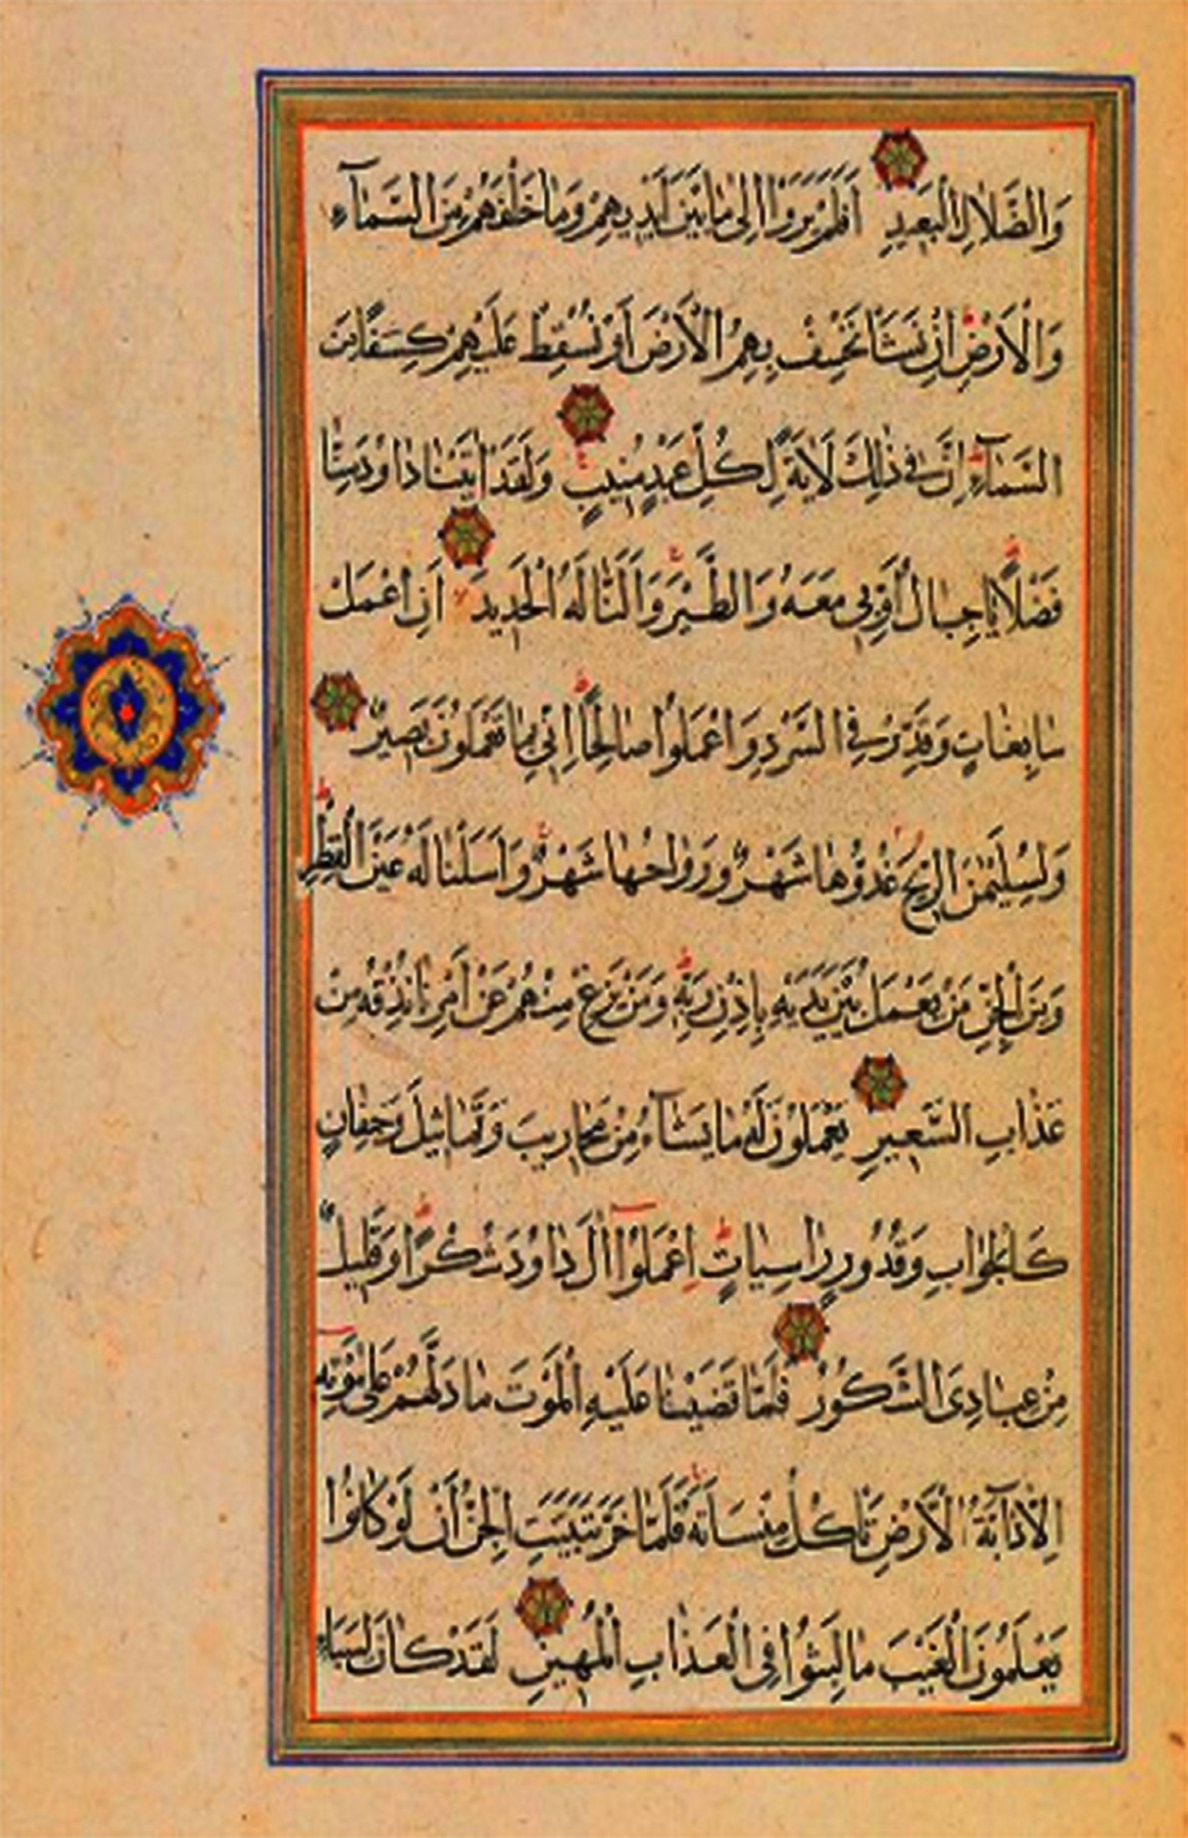 وَالضَّلَالِ الْبَعِيدِ اَفَلَمْ يَرَوْا اِلٰى مَا بَيْنَ اَيْدِيهِمْ وَمَا خَلْفَهُمْ مِنَ السَّمَآءِ
وَالْاَرْضِ اِنْ نَشَأْ نَخْسِفْ بِهِمُ الْاَرْضَ اَوْ نُسْقِطْ عَلَيْهِمْ كِسَفًا مِنَ
السَّمَآءِ اِنَّ فِى ذٰلِكَ لَاٰيَةً لِكُلِّ عَبْدٍ مُنِيبٍ وَلَقَدْ اٰتَيْنَا دَاوُدَ مِنَّا
فَضْلًا يَا جِبَالُ اَوِّبِى مَعَهُ وَالطَّيْرَ وَاَلَنَّا لَهُ الْحَدِيدَ اَنِ اعْمَلْ
سَابِغَاتٍ وَقَدِّرْ فِى السَّرْدِ وَاعْمَلُوا صَالِحًا اِنِّى بِمَا تَعْمَلُونَ بَصِيرٌ
وَلِسُلَيْمٰنَ الرِّيحَ غُدُوُّهَا شَهْرٌ وَرَوَاحُهَا شَهْرٌ وَاَسَلْنَا لَهُ عَيْنَ الْقِطْرِ
وَمِنَ الْجِنِّ مَنْ يَعْمَلُ بَيْنَ يَدَيْهِ بِاِذْنِ رَبِّهِ وَمَنْ يَزِغْ مِنْهُمْ عَنْ اَمْرِنَا نُذِقْهُ مِنْ
عَذَابِ السَّعِيرِ يَعْمَلُونَ لَهُ مَا يَشَآءُ مِنْ مَحَارِيبَ وَتَمَاثِيلَ وَجِفَانٍ
كَالْجَوَابِ وَقُدُورٍ رَاسِيَاتٍ اِعْمَلُوٓا اٰلَ دَاوُدَ شُكْرًا وَقَلِيلٌ
مِنْ عِبَادِىَ الشَّكُورُ فَلَمَّا قَضَيْنَا عَلَيْهِ الْمَوْتَ مَا دَلَّهُمْ عَلٰى مَوْتِهِ
اِلَّا دَآبَّةُ الْاَرْضِ تَأْكُلُ مِنْسَاَتَهُ فَلَمَّا خَرَّ تَبَيَّنَتِ الْجِنُّ اَنْ لَوْ كَانُوا
يَعْلَمُونَ الْغَيْبَ مَا لَبِثُوا فِى الْعَذَابِ الْمُهِينِ لَقَدْ كَانَ لِسَبَاءٍ